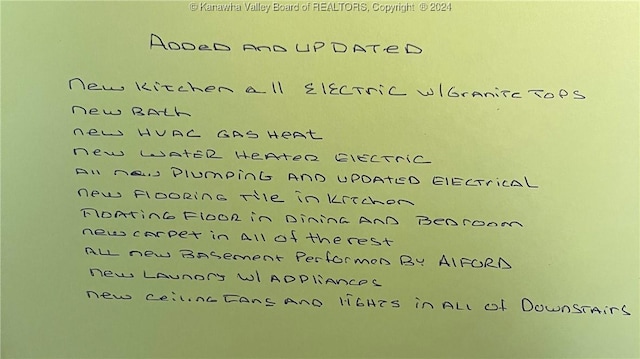 © Kanawha Valley Board of REALTORS, Copyright ® 2024
ADDED AND UPDATED
new Kitchen all ELECTRIC w/Granite TOPS
new BATH
new HVAC GAS HEAT
new WATER HEATER ELECTRIC
All new PLUMPING AND UPDATED ELECTRICAL
new FLOORING TILE in Kitchen
FLOATING FLOOR in DINING AND BEDROOM
new carpet in All of the rest
ALL new BASEMENT PERFORMED BY ALFORD
new LAUNDRY w/ APPLIANCES
new ceiling FANS AND LIGHTS in ALL of DOWNSTAIRS